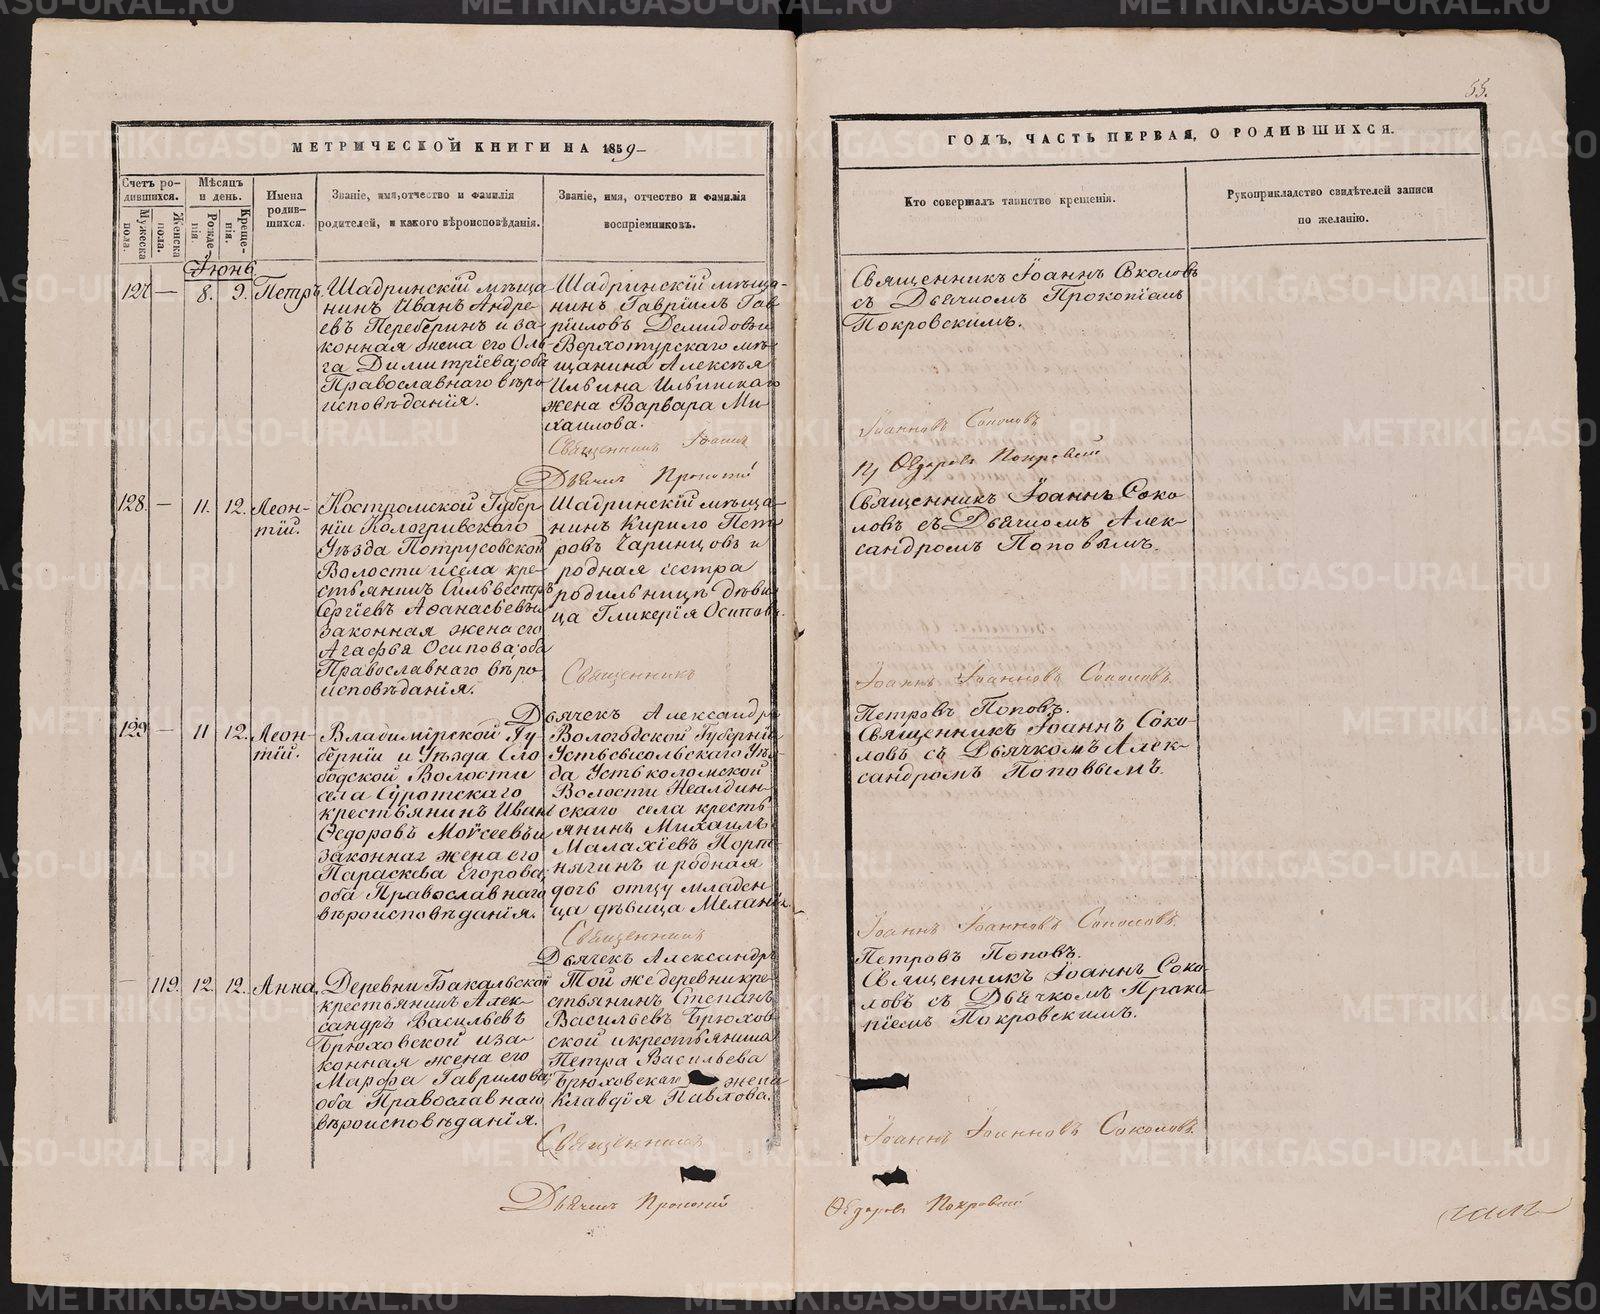 55.
МЕТРИЧЕСКОЙ КНИГИ НА 1859
Счетъ ро-
дившихся.
Мужеска пола.
Женска пола.
Мѣсяцъ
и день.
Рожде-
нія.
Креще-
нія.
Имена
родив-
шихся.
Званіе, имя, отчество и фамилія
родителей, и какого вѣроисповѣданія.
Званіе, имя, отчество и фамилія
воспріемниковъ.
Іюнь
127 — 8. 9. Петръ
Шадринскій мѣща
нинъ Иванъ Андре-
евъ Переберинъ и за
конная жена его Оль
га Димитріева; оба
Православнаго вѣро
исповѣданія.
Шадринскій мѣща-
нинъ Гавріилъ Гав
ріиловъ Демидовъ и
Верхотурскаго мѣ
щанина Алексѣя
Ильина Ильинскаго
жена Варвара Ми
хаилова.
Священникъ Іоаннъ
Дьячекъ Прокопій
128. — 11. 12. Леон-
тій.
Костромской Губер
ніи Кологривскаго
Уѣзда Потрусовской
Волости и села кре-
стьянинъ Сильвестръ
Сергіевъ Аѳанасьевъ и
законная жена его
Агафья Осипова; оба
Православнаго вѣро-
исповѣданія.
Шадринскій мѣща-
нинъ Кирило Пет
ровъ Чаринцовъ и
родная сестра
родильницѣ дѣви
ца Гликерія Осипова.
Священникъ
Дьячекъ Александръ
129 — 11 12. Леон-
тій.
Владимірской Гу-
берніи и Уѣзда Сло
бодской Волости
села Суротскаго
крестьянинъ Иванъ
Ѳедоровъ Моѵсеевъ и
законная жена его
Параскева Егорова;
оба Православнаго
вѣроисповѣданія.
Вологодской Губерніи
Устьсысольскаго Уѣз
да Устьколомской
Волости
скаго села кресть
янинъ Михаилъ
Малахіевъ Порт
нягинъ и родная
дочь отцу младен
ца дѣвица Меланія.
Священникъ
Дьячекъ Александръ
— 119. 12. 12. Анна.
Деревни Бакальской
крестьянинъ Алек-
сандръ Васильевъ
Брюховской и за-
конная жена его
Марфа Гаврилова;
оба Православнаго
вѣроисповѣданія.
Той же деревни кре-
стьянинъ Степанъ
Васильевъ Брюхов
ской и крестьянина
Петра Васильева
Брюховскаго жена
Клавдія Павлова.
Священникъ
Дьячекъ Прокопій
ГОДЪ, ЧАСТЬ ПЕРВАЯ, О РОДИВШИХСЯ.
Кто совершалъ таинство крещенія.
Рукоприкладство свидѣтелей записи
по желанію.
Священникъ Іоаннъ Соколовъ
съ Дьячкомъ Прокопіемъ
Покровскимъ.
Іоанновъ Соколовъ
Ѳедоровъ Покровскій
Священникъ Іоаннъ Соко
ловъ съ Дьячкомъ Алек-
сандромъ Поповымъ.
Іоаннъ Іоанновъ Соколовъ.
Петровъ Поповъ.
Священникъ Іоаннъ Соко-
ловъ съ Дьячкомъ Алек-
сандромъ Поповымъ.
Іоаннъ Іоанновъ Соколовъ.
Петровъ Поповъ.
Священникъ Іоаннъ Соко-
ловъ съ Дьячкомъ Проко-
піемъ Покровскимъ.
Іоаннъ Іоанновъ Соколовъ.
Ѳедоровъ Покровскій
METRIKI.GASO-URAL.RU